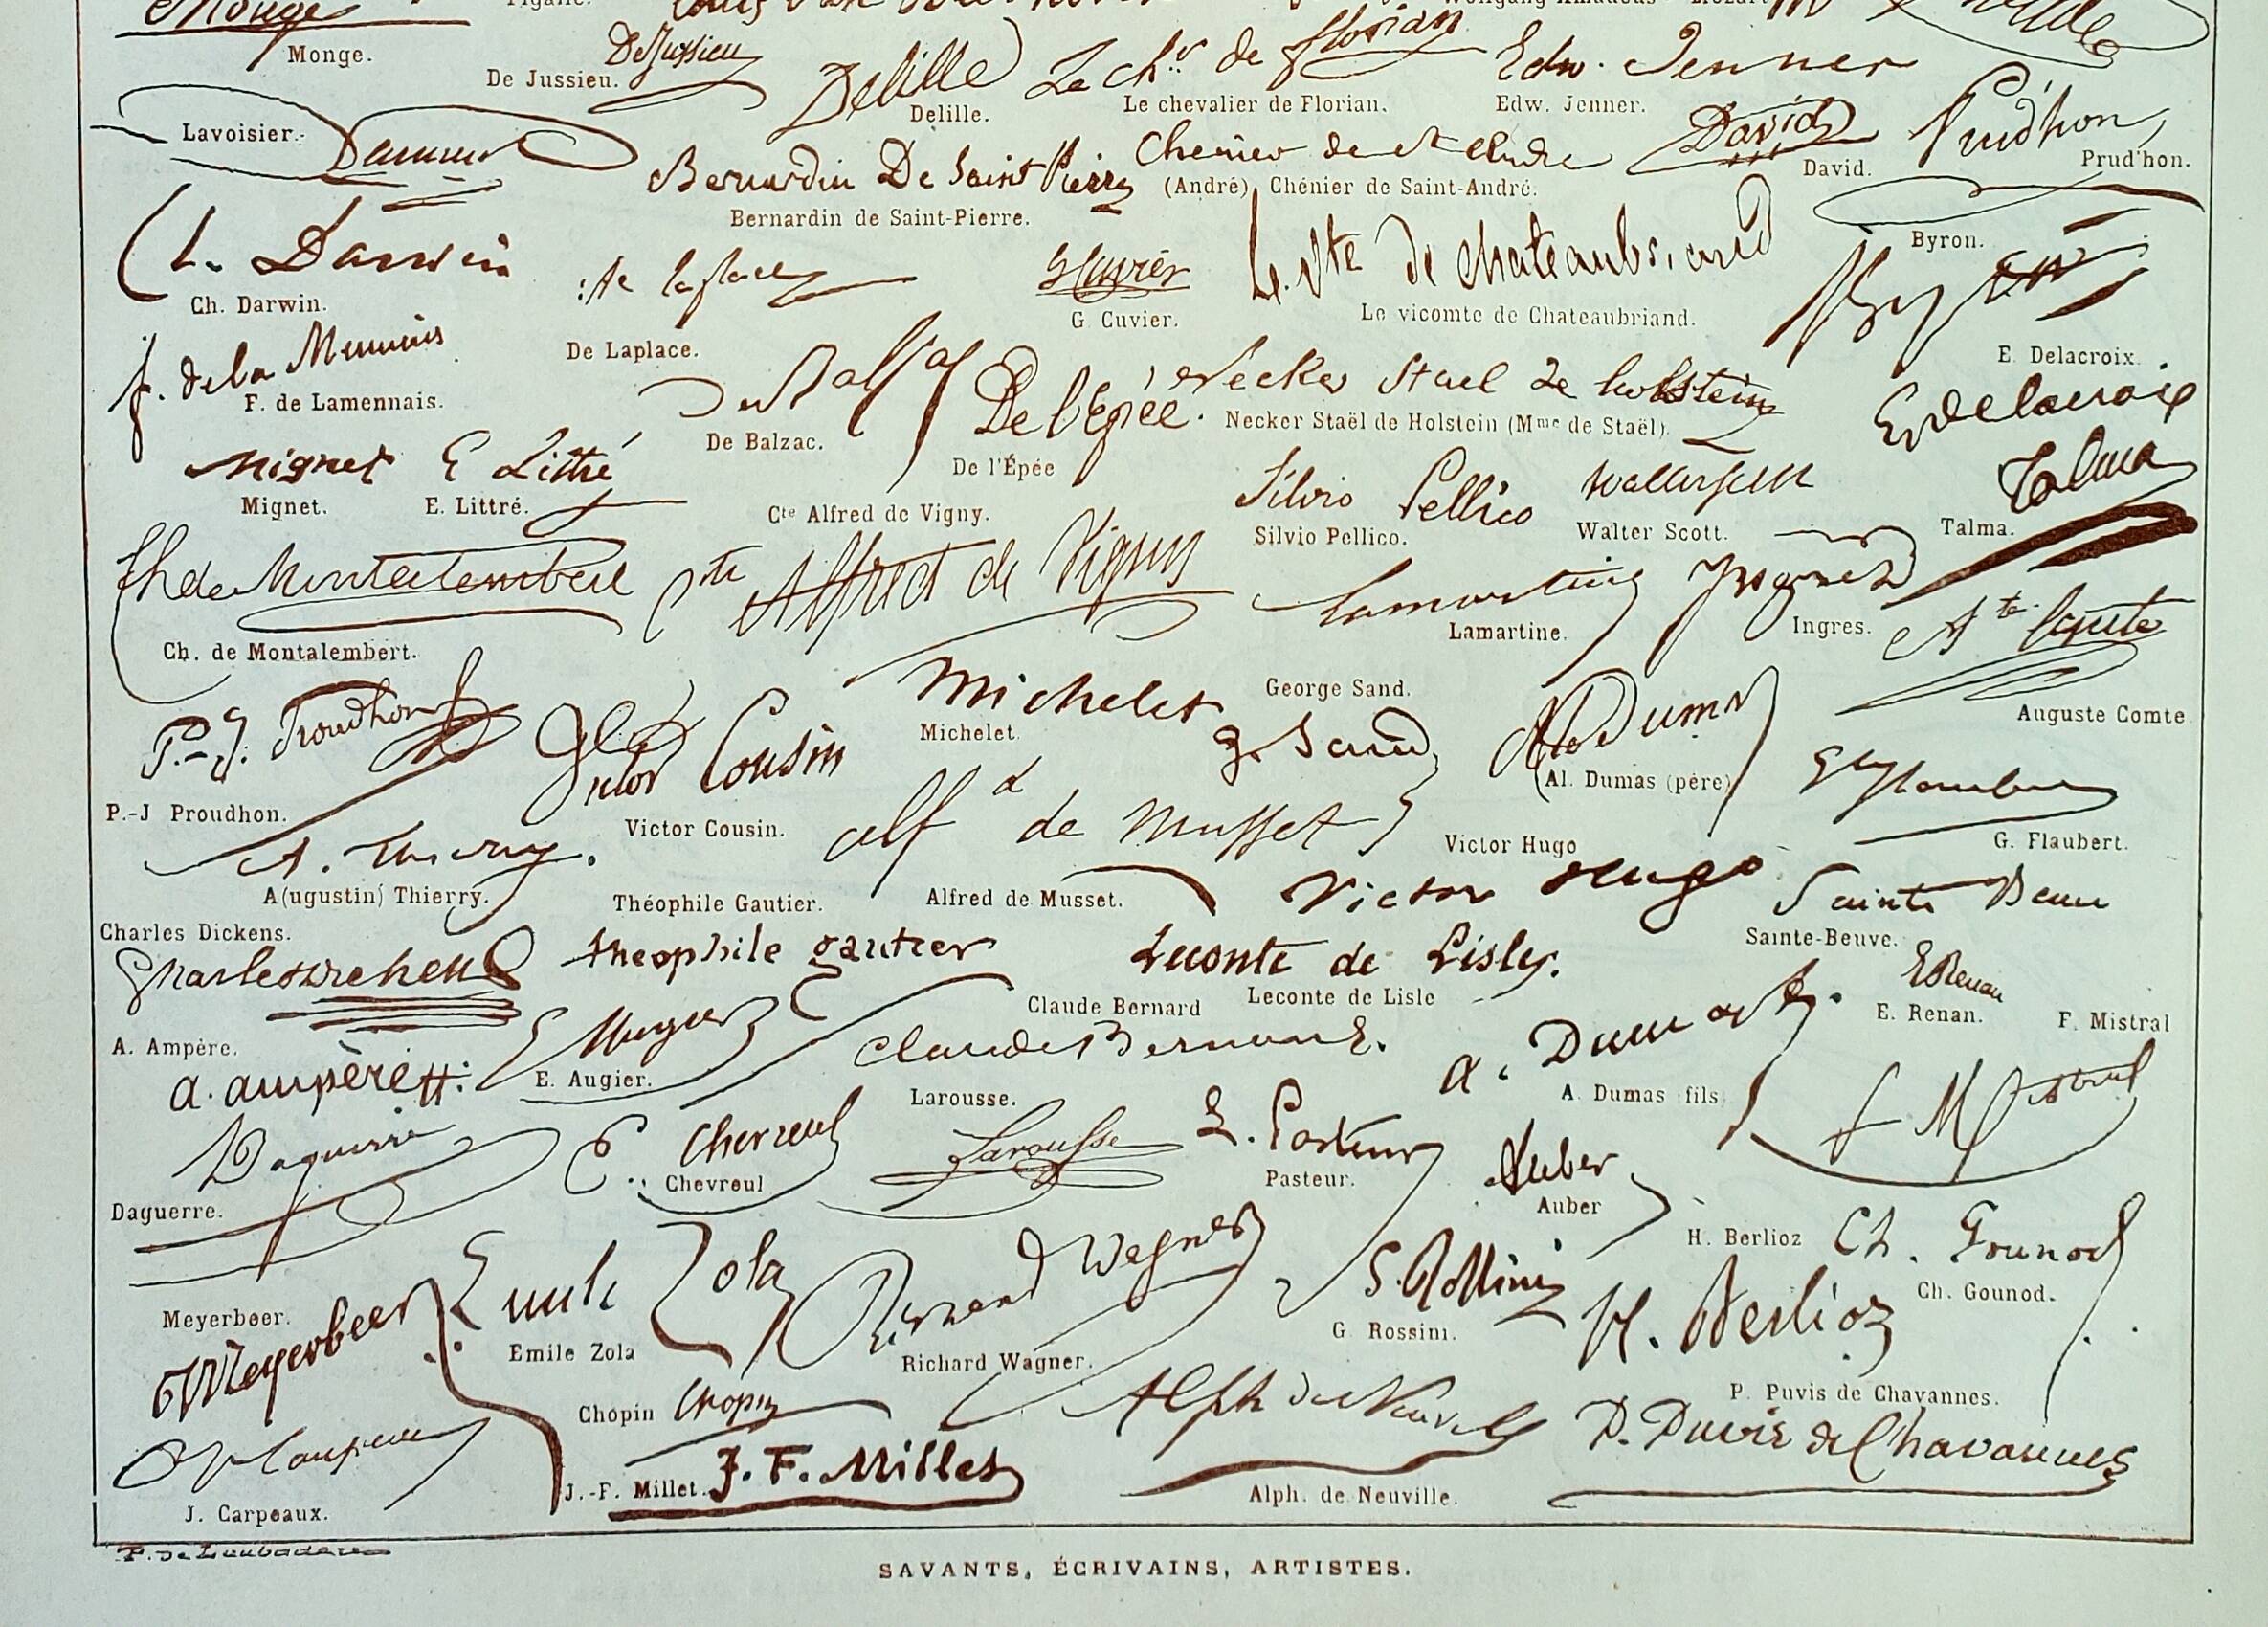 Monge
Monge.
De Jussieu
De Jussieu.
Delille
Delille.
Le chr de florian
Le chevalier de Florian.
Edw. Jenner
Edw. Jenner.
Lavoisier.
Bernardin De Saint Pierre
Bernardin de Saint-Pierre.
(André) Chénier de Saint-André.
David
David.
Prudhon
Prud'hon.
Darwin
Ch. Darwin.
De Laplace.
G Cuvier
G Cuvier.
Le Vte de Chateaubriand
Le vicomte de Chateaubriand.
Byron.
Byron
f. de la Mennais
F. de Lamennais.
De Balzac
De Balzac.
De l'Epée.
De l'Épée
Necker Stael de holstein
Necker Staël de Holstein (Mme de Staël).
E. Delacroix.
E Delacroix
Mignet
Mignet.
E Littré
E. Littré.
Cte Alfred de Vigny.
Silvio Pellico
Silvio Pellico.
Walter Scott
Walter Scott.
Talma
Talma.
Ch de Montalembert
Ch. de Montalembert.
Cte Alfred de Vigny
Lamartine
Lamartine.
Ingres
Ingres.
Ate Comte
Auguste Comte
P.-J. Proudhon
P.-J Proudhon.
Victor Cousin
Victor Cousin.
Michelet
Michelet.
George Sand.
G. Sand
Al. Dumas (père)
G Flaubert
G. Flaubert.
A. Thierry.
A(ugustin) Thierry.
Alfd de Musset
Alfred de Musset.
Victor Hugo
Victor Hugo
Sainte Beuve
Sainte-Beuve.
Charles Dickens.
Charles Dickens
Théophile Gautier.
theophile gautier
Leconte de Lisle.
Leconte de Lisle
Claude Bernard
Claude Bernard.
E Renan
E. Renan.
F. Mistral
F Mistral
A. Ampère.
a. ampère
E Augier
E. Augier.
A. Dumas f.
A. Dumas fils
Daguerre
Daguerre.
E. Chevreul
Chevreul
Larousse.
Larousse
L. Pasteur
Pasteur.
Auber
Auber
Ch. Gounod
Ch. Gounod.
H. Berlioz
H. Berlioz
Meyerbeer.
Meyerbeer
Emile Zola
Emile Zola
Richard Wagner
Richard Wagner.
G. Rossini
G. Rossini.
Chopin
Chopin
J. Carpeaux.
J.-F. Millet.
J. F. Millet
Alph de Neuville
Alph. de Neuville.
P. Puvis de Chavannes.
P. Puvis de Chavannes
SAVANTS, ÉCRIVAINS, ARTISTES.